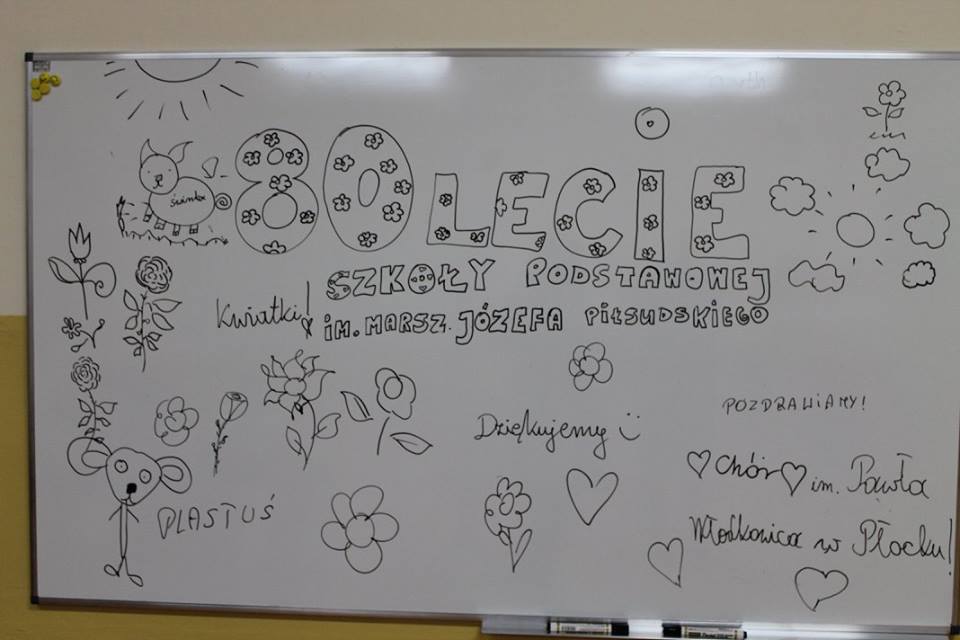 80LECIE
świnka
SZKOŁY PODSTAWOWEJ
IM. MARSZ. JÓZEFA PIŁSUDSKIEGO
Kwiatki!
Dziękujemy :)
POZDRAWIAMY!
♡ Chór ♡ im. Pawła
Włodkowica w Płocku!
PLASTUŚ